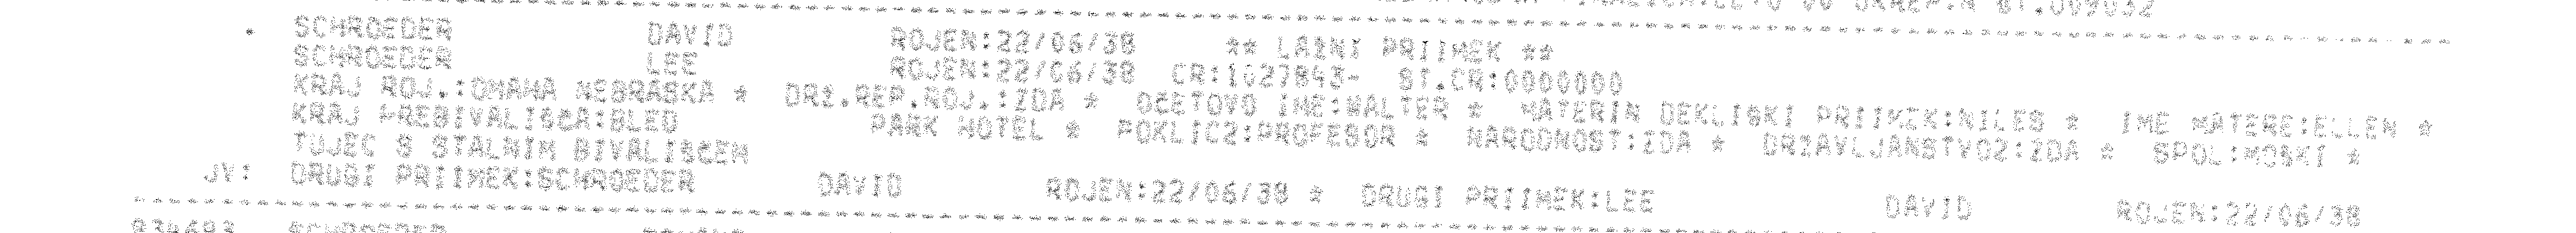 SCHROEDER DAVID ROJEN:22/06/38 ** LAZNI PRIIMEK **
SCHROEDER LEE ROJEN:22/06/38 CR:1627843- ST.CR:0000000
KRAJ ROJ.:OMAHA NEBRASKA * DRZ.REP.ROJ.:ZDA * OCETOVO IME:WALTER * MATERIN DEKLISKI PRIIMEK:NILES * IME MATERE:ELLEN *
KRAJ PREBIVALISCA:BLED PARK HOTEL * POKLIC2:PROFESOR * NARODNOST:ZDA * DRZAVLJANSTVO2:ZDA * SPOL:MOSKI *
TUJEC S STALNIM BIVALISCEM
JV: DRUGI PRIIMEK:SCHROEDER DAVID ROJEN:22/06/38 * DRUGI PRIIMEK:LEE DAVID ROJEN:22/06/38